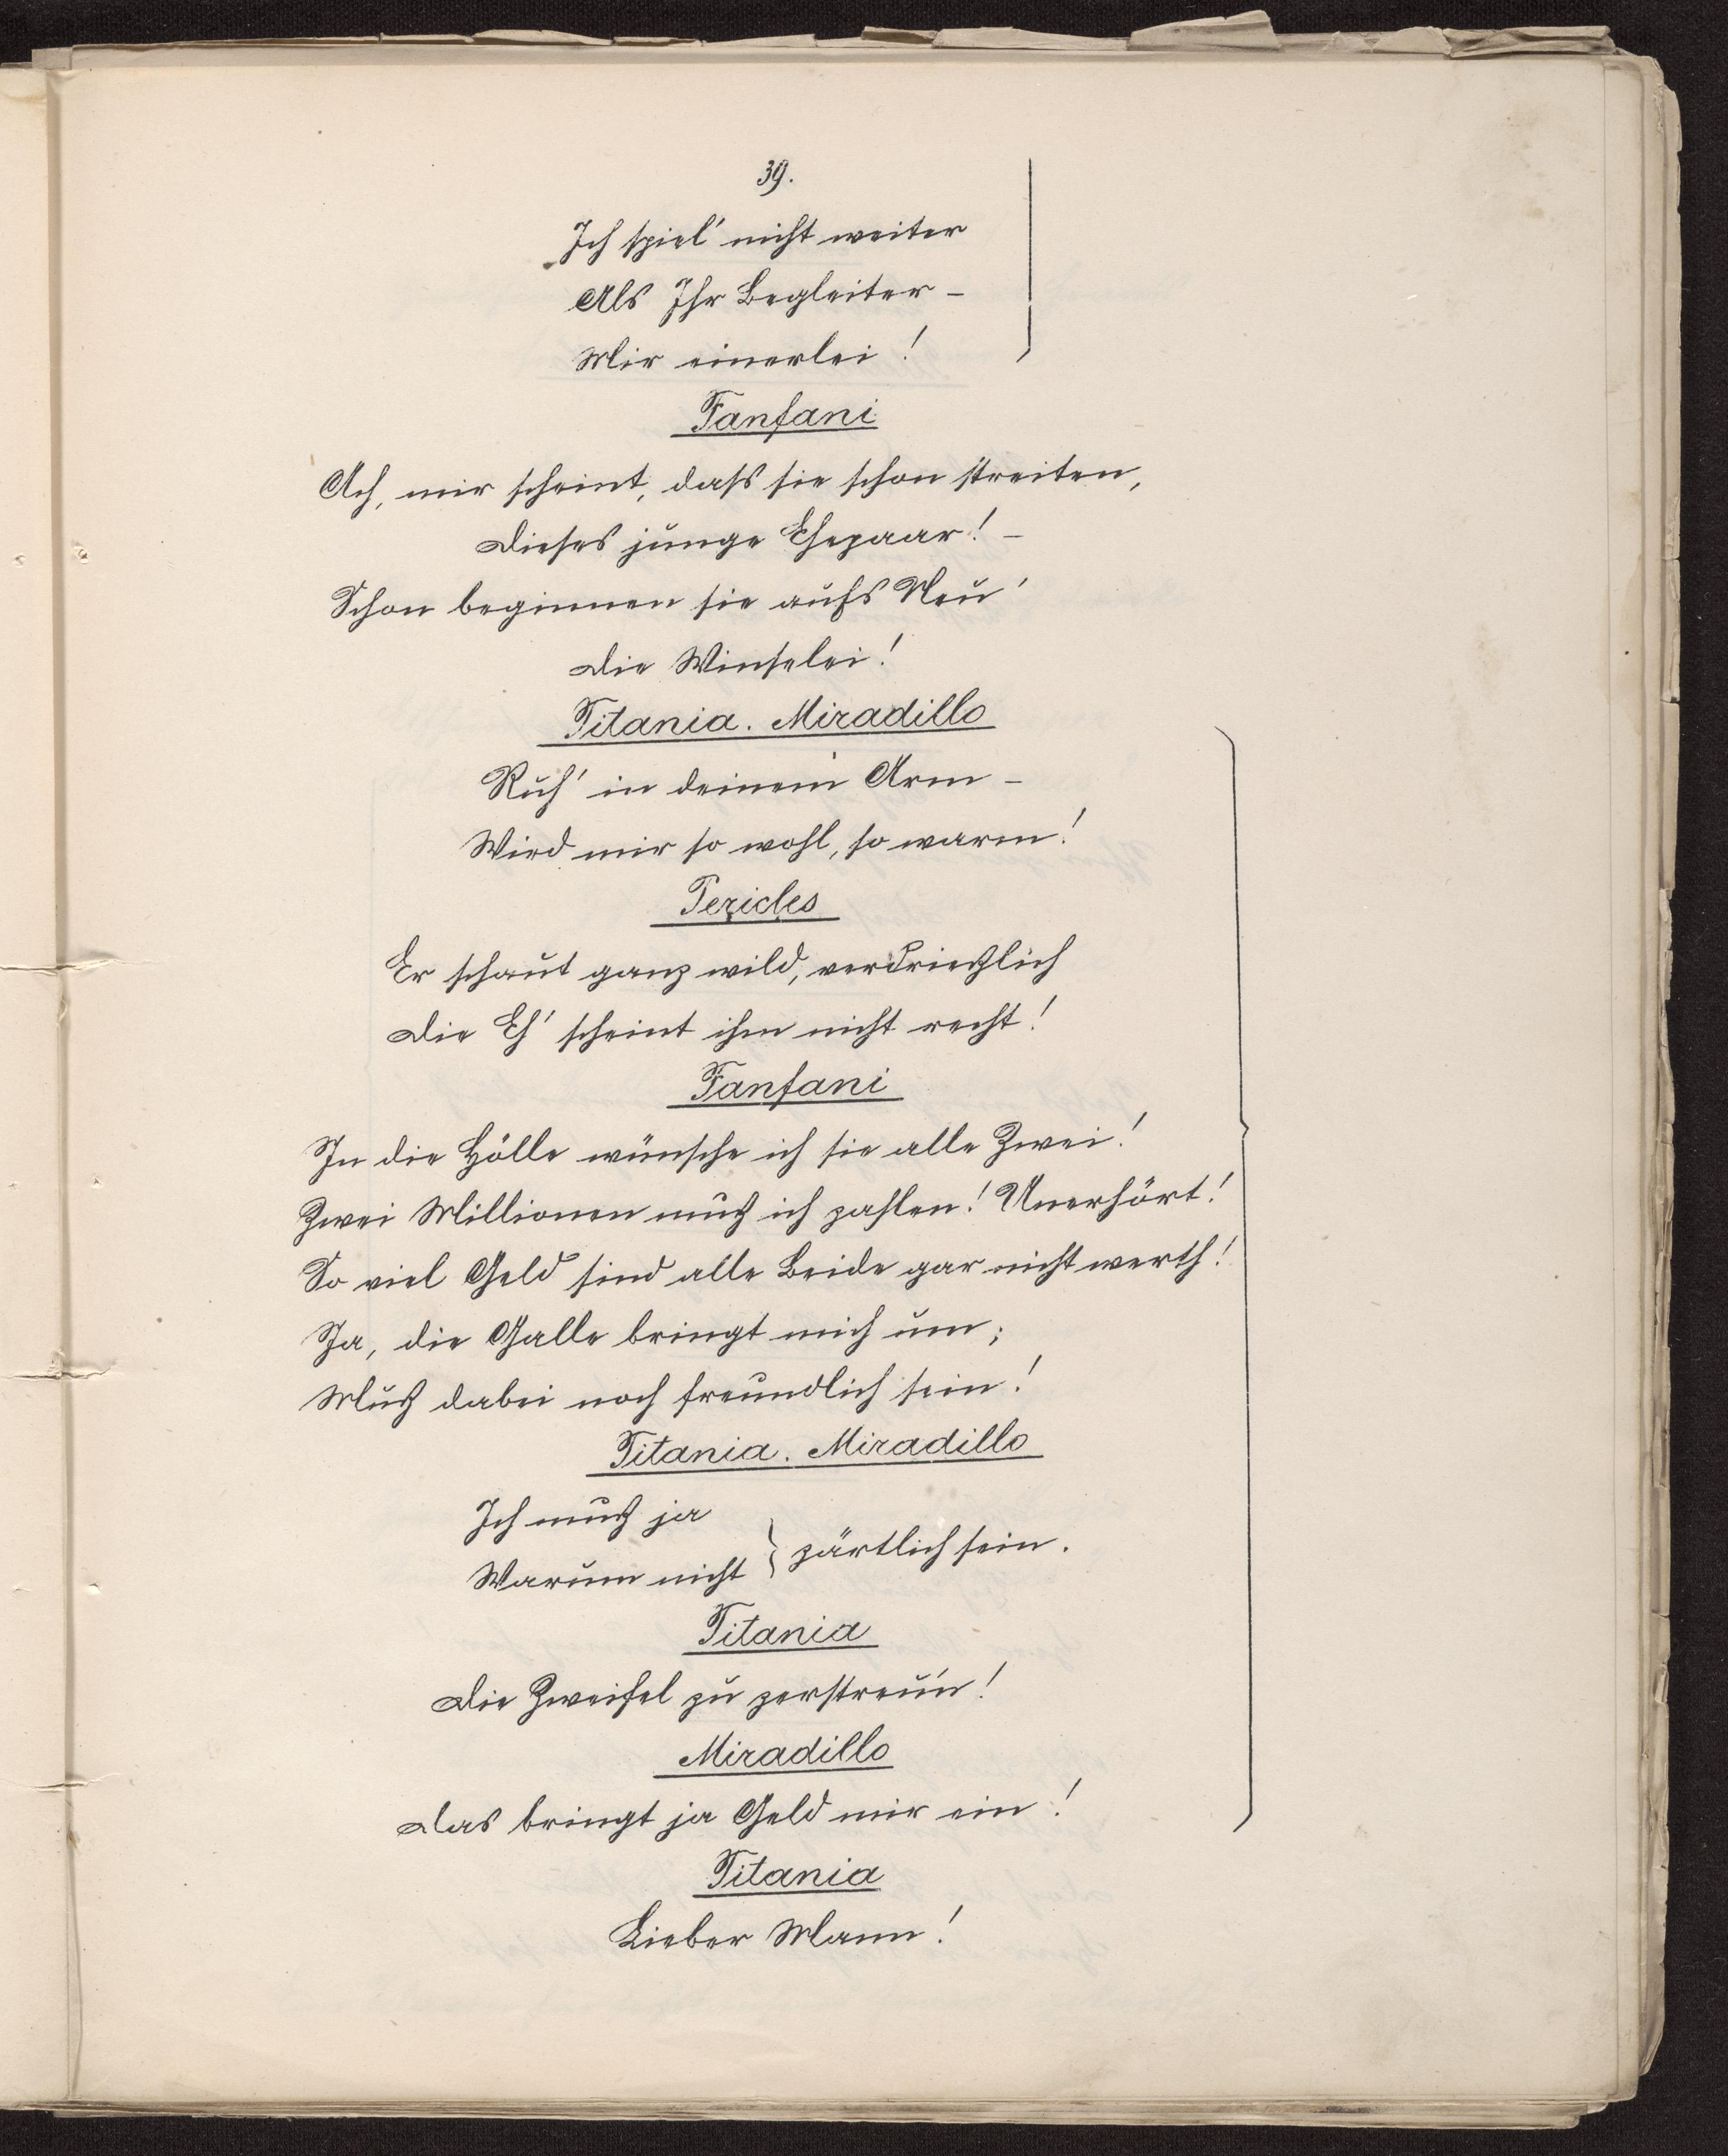 39.
Ich spiel' nicht weiter
Als Ihr Begleiter –
Mir einerlei!
Fanfani
Ach, mir scheint, dass sie schon streiten,
Dieses junge Ehepaar! –
Schon beginnen sie aufs Neu'
Die Winselei!
Titania. Miradillo
Ruh' in deinem Arm –
Wird mir so wohl, so warm!
Pericles
Er schaut ganz wild, verdrießlich
Die Eh' scheint ihm nicht recht!
Fanfani
In die Hölle wünsche ich sie alle Zwei!
Zwei Millionen muß ich zahlen! Unerhört!
So viel Geld sind alle Beide gar nicht werth!
Ja, die Galle bringt mich um;
Muß dabei noch freundlich sein!
Titania. Miradillo
Ich muß ja
Warum nicht } zärtlich sein.
Titania
Die Zweifel zu zerstreu'n!
Miradillo
Das bringt ja Geld mir ein!
Titania
Lieber Mann!